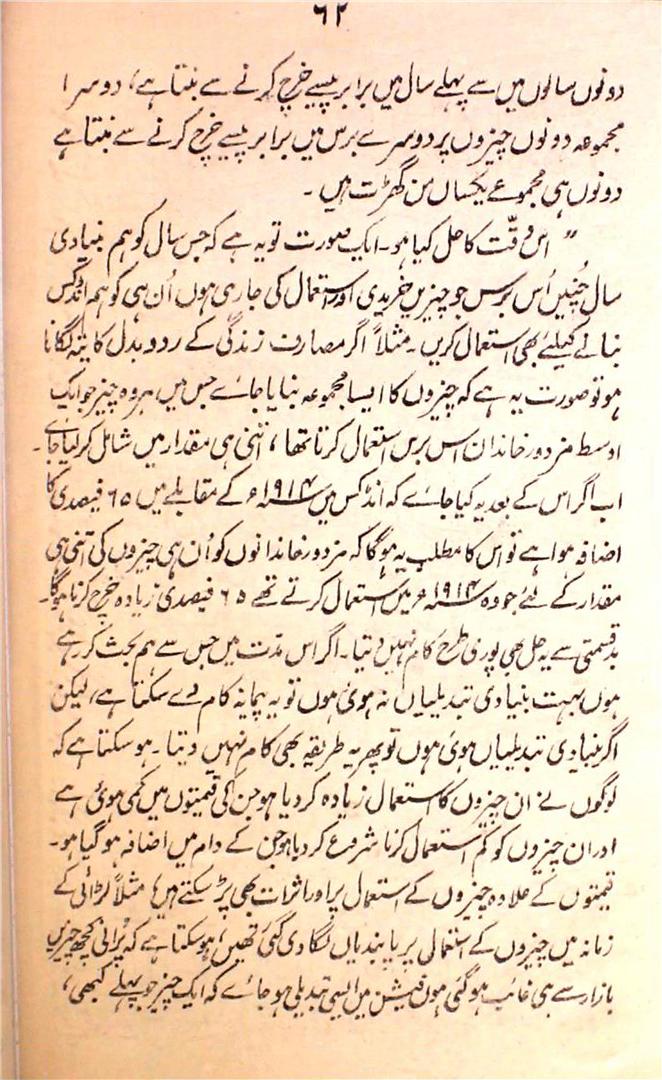 ۶۲
دونوں سالوں میں سے پہلے سال میں برابر پیسے خرچ کرنے سے بنتا ہے، دوسرا
مجموعہ دونوں چیزوں پر دوسرے برس میں برابر پیسے خرچ کرنے سے بنتا ہے
دونوں ہی مجموعے یکساں من گھڑت ہیں۔
” اس دقّت کا حل کیا ہو۔ ایک صورت تو یہ ہے کہ جس سال کو ہم بنیادی
سال چنیں اُس برس جو چیزیں خریدی اور استعمال کی جا رہی ہوں اُن ہی کو ہم انڈکس
بنانے کیلئے بھی استعمال کریں۔ مثلاً اگر مصارف زندگی کے ردوبدل کا پتہ لگانا
ہو تو صورت یہ ہے کہ چیزوں کا ایسا مجموعہ بنایا جائے جس میں ہر وہ چیز جو ایک
اوسط مزدور خاندان اس برس استعمال کرتا تھا، اتنی ہی مقدار میں شامل کر لیا جائے۔
اب اگر اس کے بعد یہ کیا جائے کہ انڈکس میں ۱۹۱۴ء کے مقابلے میں ۶۵ فیصدی کا
اضافہ ہوا ہے تو اس کا مطلب یہ ہوگا کہ مزدور خاندانوں کو اُن ہی چیزوں کی اتنی ہی
مقدار کے لئے جو وہ ۱۹۱۴ء میں استعمال کرتے تھے ۶۵ فیصدی زیادہ خرچ کرنا ہوگا۔
بدقسمتی سے یہ حل بھی پوری طرح کام نہیں دیتا۔ اگر اس مدّت میں جس سے ہم بحث کر رہے
ہوں بہت بنیادی تبدیلیاں نہ ہوئی ہوں تو یہ پیمانہ کام دے سکتا ہے، لیکن
اگر بنیادی تبدیلیاں ہوئی ہوں تو پھر یہ طریقہ بھی کام نہیں دیتا۔ ہو سکتا ہے کہ
لوگوں نے ان چیزوں کا استعمال زیادہ کر دیا ہو جن کی قیمتوں میں کمی ہوئی ہے
اور ان چیزوں کو کم استعمال کرنا شروع کر دیا ہو جن کے دام میں اضافہ ہو گیا ہو۔
قیمتوں کے علاوہ چیزوں کے استعمال پر اور اثرات بھی پڑ سکتے ہیں، مثلاً لڑائی کے
زمانہ میں چیزوں کے استعمال پر پابندیاں لگا دی گئی تھیں، ہو سکتا ہے کہ پُرانی کچھ چیزیں
بازار سے ہی غائب ہو گئی ہوں فیشن میں ایسی تبدیلی ہو جائے کہ ایک چیز جو پہلے کبھی،